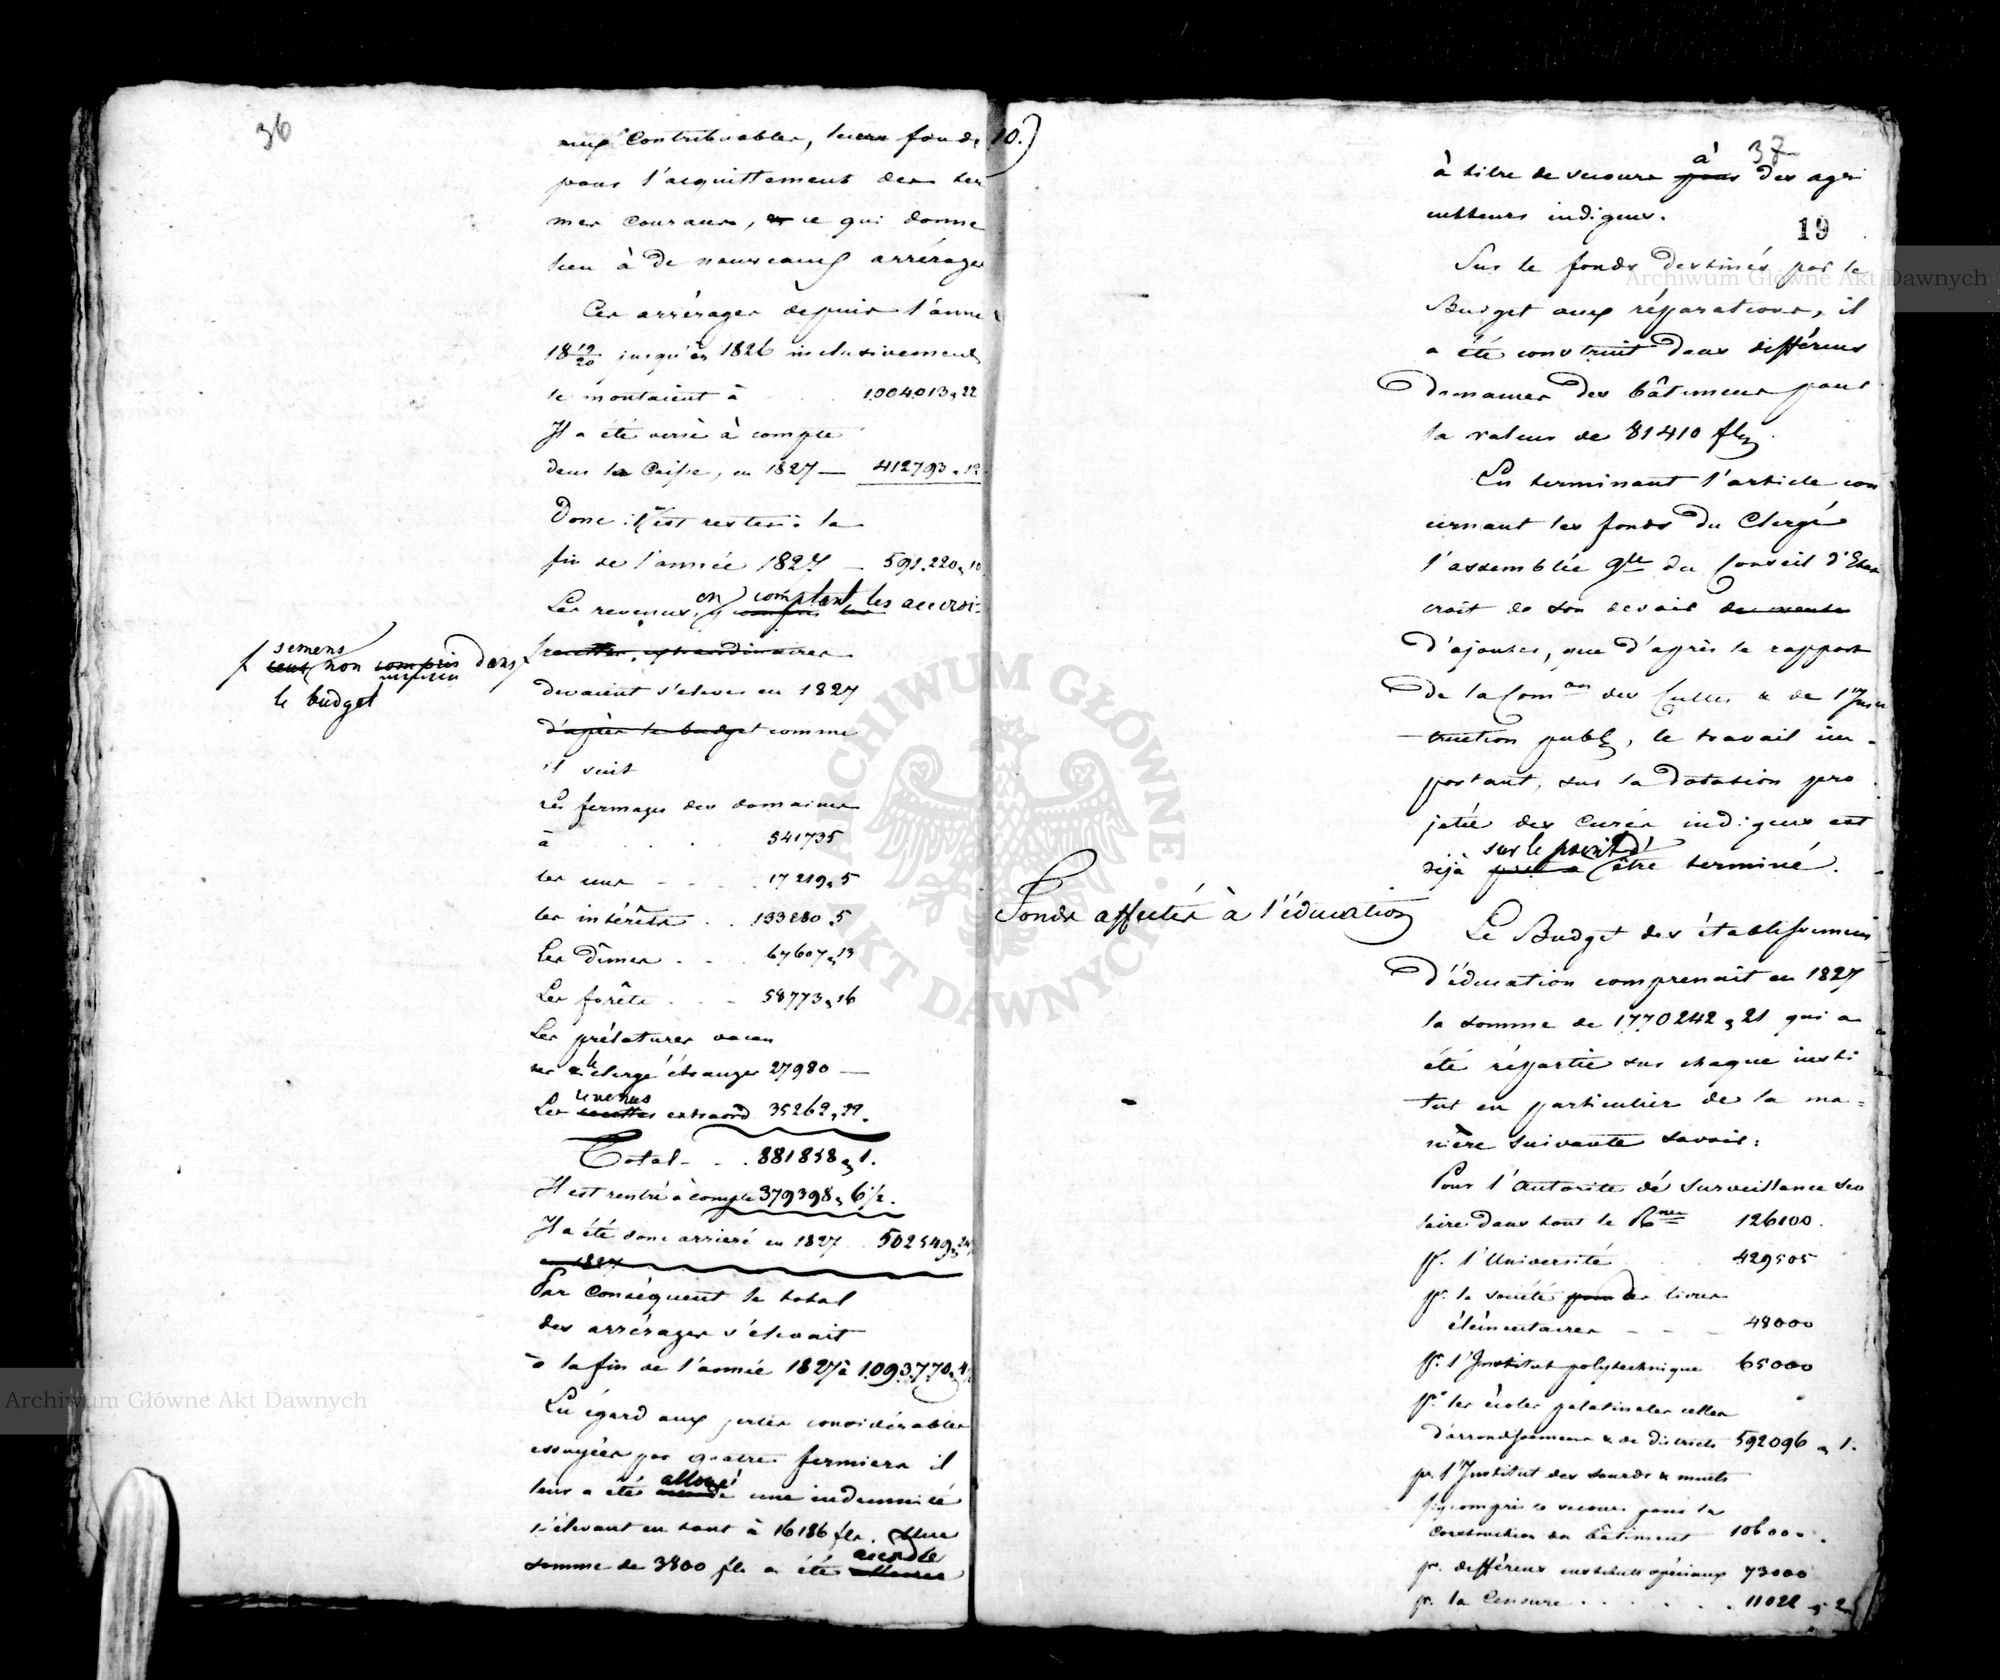 36
aux Contribuables, leurs fonds 10.)
pour l'acquittement des ter
mes courans, & ce qui donne
lieu à de nouveaux arrérages
Ces arrérages depuis l'année
18 19/20 jusqu'en 1826 inclusivement
se montaient à . . . 1.004.013,22
Il a été versé à compte
dans la Caisse, en 1827 — 412793.12
Donc il est resté à la
fin de l'année 1827 — 591.220,10
Les revenus, en comptant les accrois-
semens non dans
le budget
recettes extraordinaires
devaient s'élever en 1827
d'après le budget comme
il suit
Les fermages des domaines
à . . . . 541735
les cens - - - 17219,5
les intérêts . . 133280.5
Les Dîmes . . . 67607,13
Les forêts . . - 58773,16
Les prélatures vacan
tes & le clergé étranger 27980 —
Les revenus recettes extraord 35262,22.
Total - . . 881858,1.
Il est rentré à compte 379398, 6 1/2.
Il a été donc arriéré en 1827 . . 502549,24
en 1827
Par Conséquent le total
des arrérages s'élevait
à la fin de l'année 1827 à 1.093.770,4
Eu égard aux pertes considérables
essuyées par quatre fermiers il
leur a été alloué une indemnité
s'élevant en tout à 16186 fls. Une
somme de 3800 fls a été accordée allouée
37
19
à titre de secours pour à des agri
culteurs indigens.
Sur le fonds destinés par le
Budget aux réparations, il
a été construit dans différens
domaines des bâtimens pour
la valeur de 81410 fls.
En terminant l'article con
cernant les fonds du Clergé
l'assemblée gle du Conseil d'Etat
croit de son devoir
d'ajouter, que d'après le rapport
de la Comon des Cultes & de l'Ins
truction publ, le travail im-
portant, sur la Dotation pro
jetée des Curés indigens est
déjà sur le point d'être terminé.
Fonds affectés à l'éducation
Le Budget des établissemens
d'éducation comprenait en 1827
la somme de 1.770242,21 qui a
été répartie sur chaque insti
tut en particulier de la ma-
nière suivante savoir:
Pour l'Autorité de surveillance sco
laire dans tout le Rme 126100.
pr. l'Université . . 429505
pr. la société pour des livres
élémentaires - - - 48000
pr. l'Institut polytechnique 65000
pr. les écoles palatinales celles
d'arrondissemens & de districts 592096,1.
pr. l'Institut des sourds & muets
y compris le secours pour la
construction du bâtiment 106000.
pr. différens instituts spéciaux 73000
pr. la Censure . . . . . . 11022,2
Archiwum Główne Akt Dawnych
Archiwum Główne Akt Dawnych
ARCHIWUM GŁÓWNE AKT DAWNYCH